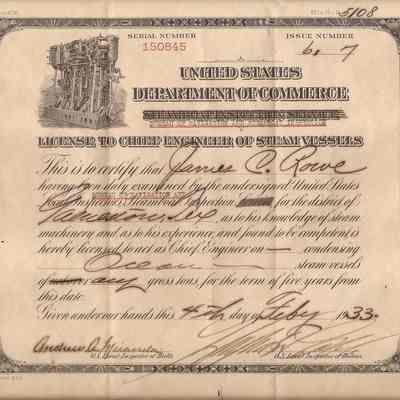 5108
SERIAL NUMBER
150845
ISSUE NUMBER
6-7
UNITED STATES
DEPARTMENT OF COMMERCE
STEAMBOAT INSPECTION SERVICE
LICENSE TO CHIEF ENGINEER OF STEAM VESSELS
This is to certify that James C. Rowe
having been duly examined by the undersigned United States
Inspection for the district of
Galveston, Tex, as to his knowledge of steam
machinery and as to his experience, and found to be competent is
hereby licensed to act as Chief Engineer on — condensing
Ocean steam vessels
of any gross tons, for the term of five years from
this date.
Given under our hands this 4th day of Feby 1933.
U.S. Local Inspector of Hulls.
U.S. Local Inspector of Boilers.